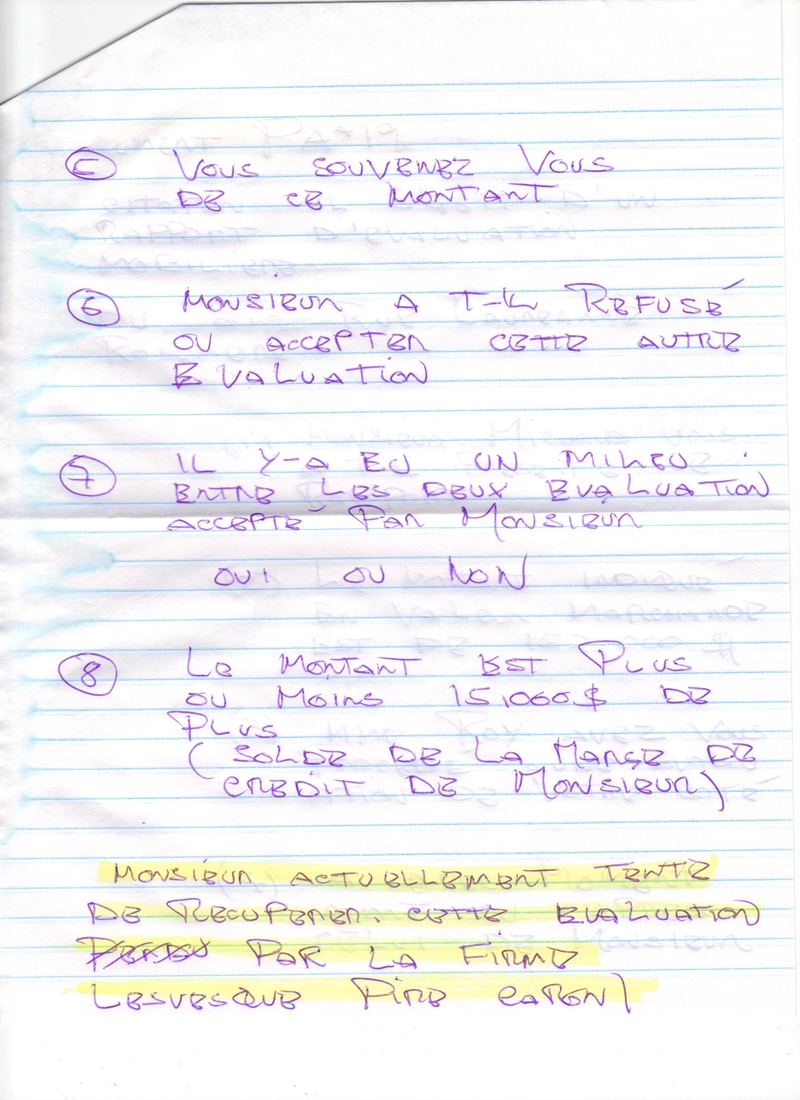 C VOUS SOUVENEZ VOUS
DE CE MONTANT
6 MONSIEUR A T-IL REFUSÉ
OU ACCEPTER CETTE AUTRE
EVALUATION
7 IL Y-A EU UN MILIEU
ENTRE LES DEUX EVALUATION
ACCEPTÉ PAR MONSIEUR
OUI OU NON
8 LE MONTANT EST PLUS
OU MOINS 15,000$ DE
PLUS
( SOLDE DE LA MARGE DE
CREDIT DE MONSIEUR)
MONSIEUR ACTUELLEMENT TENTE
DE RECUPERER. CETTE EVALUATION
PAR LA FIRME
LESVESQUE PIRE CARON)